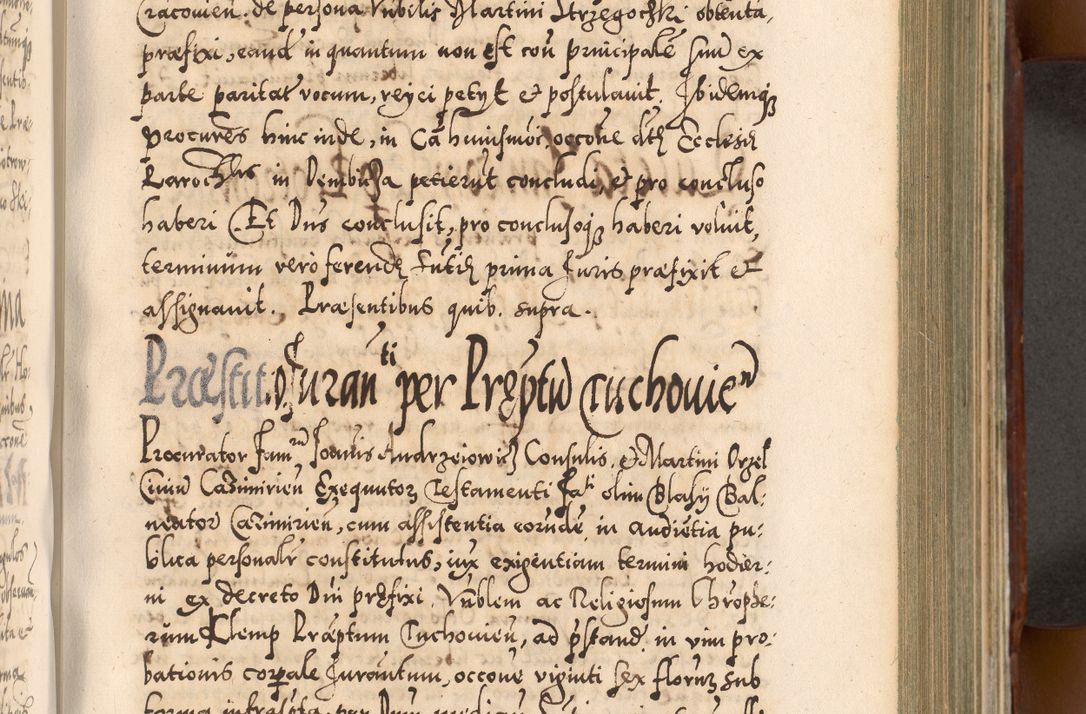 Cracovien. de persona Nobilis Martini Strzegoczki obtenta,
præfixi, eand in quantum non est con principale suu ex
parte paritat vocum, reyci petyt et postulavit. Ibidemq
procures hinc inde, in Ca huiusmoi, occone dth Ecclesiæ
Paroch in Dembicza petierut concludi, et pro concluso
haberi. Et Dns conclusit, pro conclusoq haberi voluit,
terminum vero ferend sntiæ prima Juris præfixit et
assignavit. Præsentibus quib. supra.
Præstit. Juranti per Præptu Tuchovien
Procurator Fam Joannis Andrzeiowicz Consulis, et Martini Orzel
Civiu Casimirien Exequutor Testamenti Fati olim Blasy Bal:
neator Casimirien, cum assistentia eorude, in audietia pu:
blica personalr constitutus, iux exigentiam termini hodier:
ni ex decreto Dni præfixi. Vnblem ac Religiosum Chrophe:
rum Klemp Præptum Tuchovien, ad pstand in vim pro:
bationis corpale Iuramtum, occone viginti sex floren sub
forma infrascpta, per Dnm